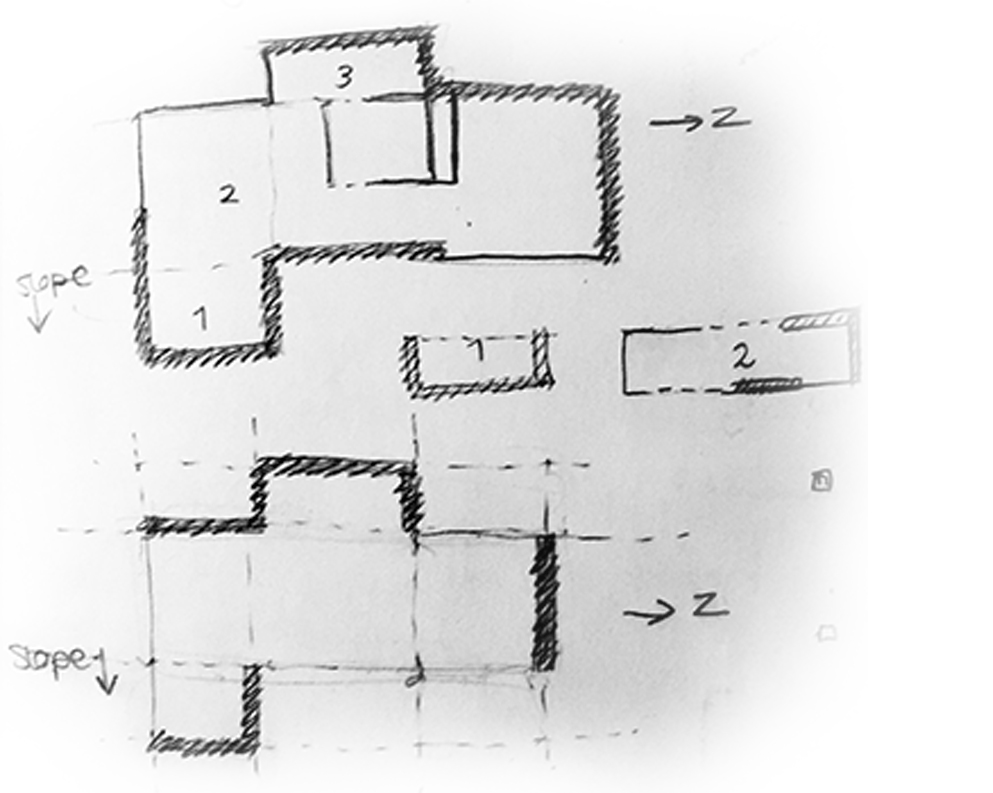 3
→ Z
2
slope
↓
1
1
2
→ Z
slope ↓